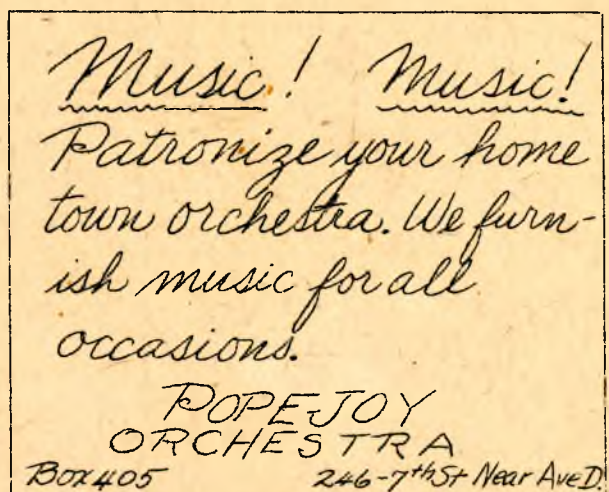 Music! Music!
Patronize your home
town orchestra. We furn-
ish music for all
occasions.
POPEJOY
ORCHESTRA
Box 405 246-7th St Near Ave D.